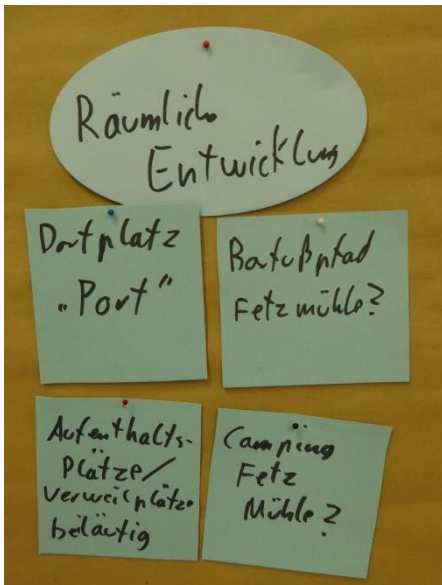 Räumlich
Entwicklung
Dorfplatz
„Port"
Barfußpfad
Fetzmühle?
Aufenthalts-
Plätze/
Verweilplätze
beiläufig
Camping
Fetz
Mühle?